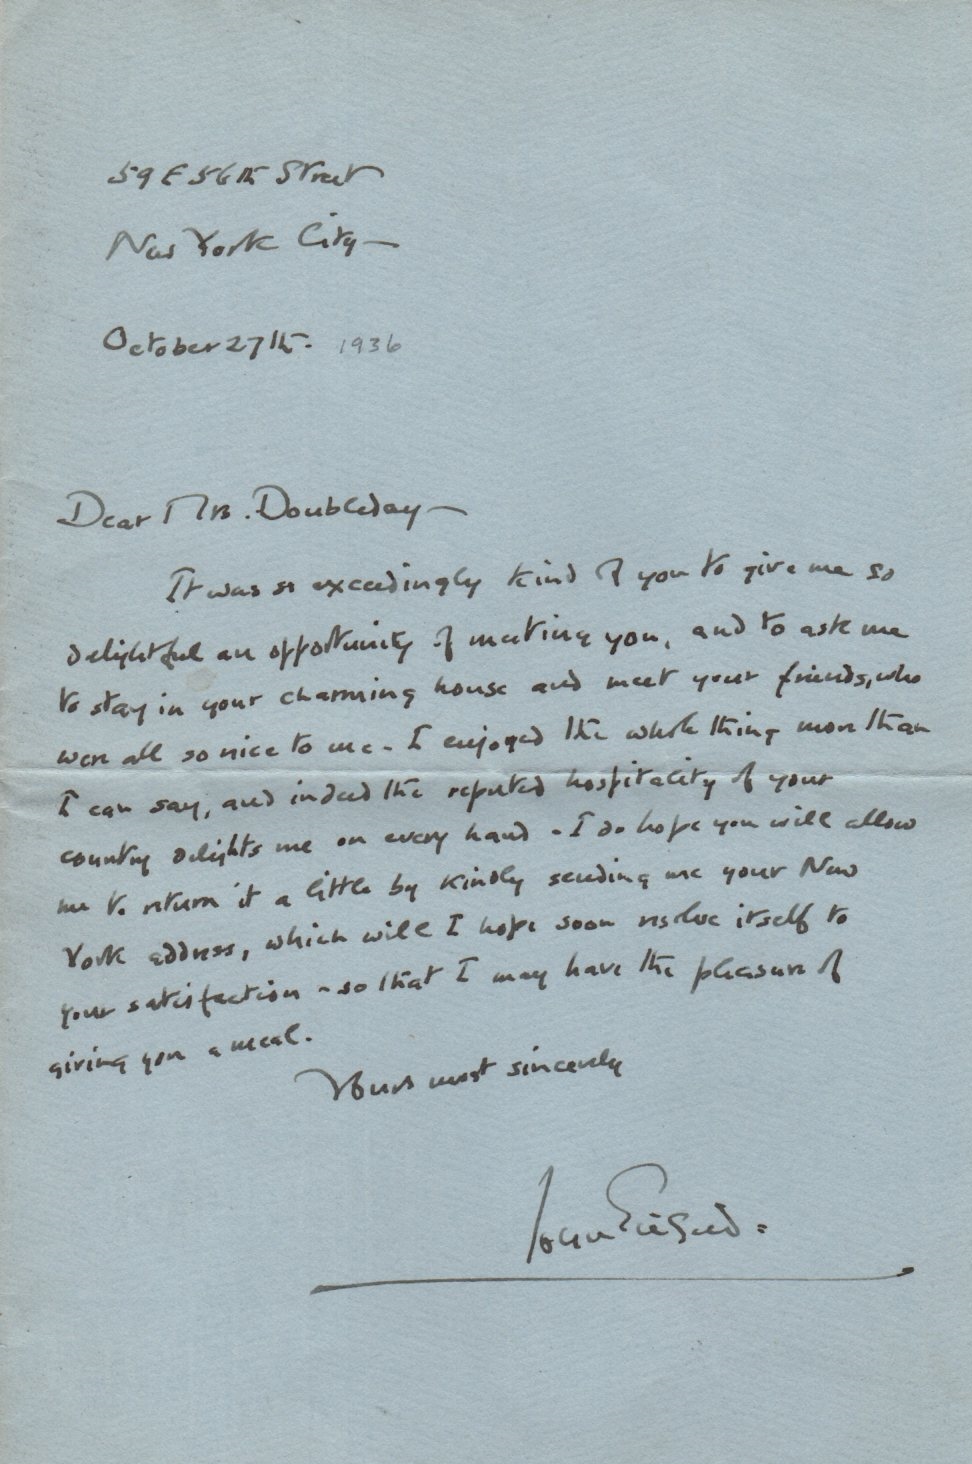 59 E 56th Street
New York City—
October 27th. 1936
Dear Mrs. Doubleday—
It was so exceedingly kind of you to give me so
delightful an opportunity of meeting you, and to ask me
to stay in your charming house and meet your friends, who
were all so nice to me. I enjoyed the whole thing more than
I can say, and indeed the reputed hospitality of your
country delights me on every hand. I do hope you will allow
me to return it a little by kindly sending me your New
York address, which will I hope soon resolve itself to
your satisfaction - so that I may have the pleasure of
giving you a meal.
Yours most sincerely
John Gielgud.